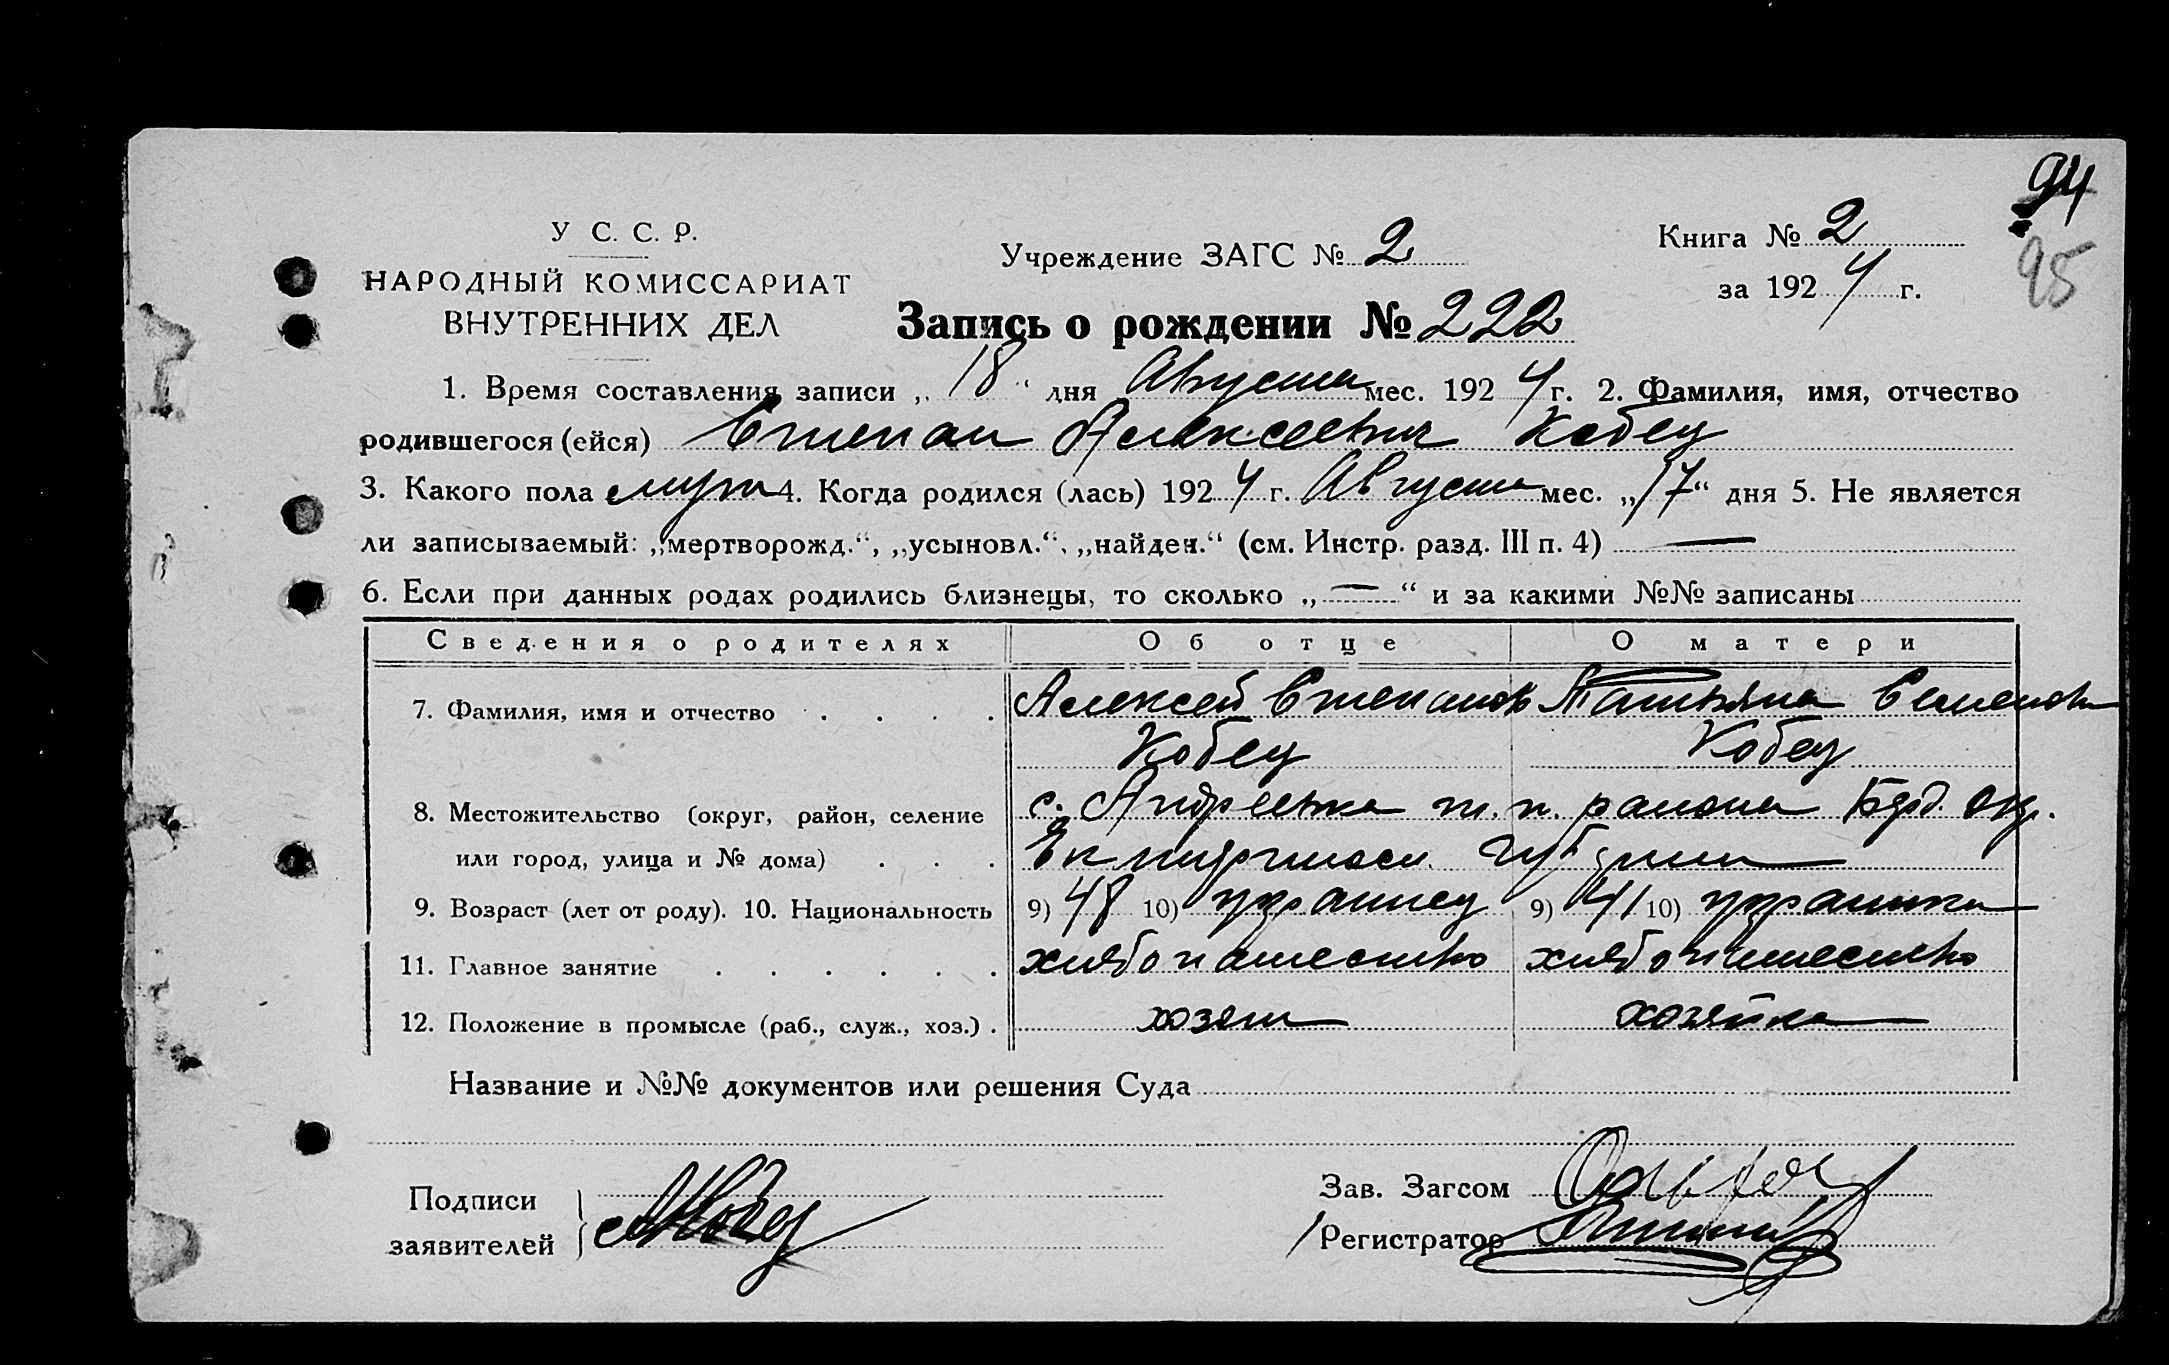 94
95
У С. С. Р.
НАРОДНЫЙ КОМИССАРИАТ
ВНУТРЕННИХ ДЕЛ
Учреждение ЗАГС № 2
Книга № 2
за 1924 г.
Запись о рождении № 222
1. Время составления записи „18“ дня Августа мес. 1924 г. 2. Фамилия, имя, отчество
родившегося (ейся) Степан Алексеевич Кобец
3. Какого пола муж 4. Когда родился (лась) 1924 г. Августа мес. „17“ дня 5. Не является
ли записываемый: „мертворожд.“, „усыновл.“, „найден.“ (см. Инстр. разд. III п. 4) —
6. Если при данных родах родились близнецы, то сколько „—“ и за какими №№ записаны
Сведения о родителях Об отце О матери
7. Фамилия, имя и отчество . . . . Алексей Степанов Татьяна Семенов
Кобец Кобец
8. Местожительство (округ, район, селение с. Андреевка т. п. района Берд. окр.
или город, улица и № дома) . . . Губернии
9. Возраст (лет от роду). 10. Национальность 9) 48 10) украинец 9) 41 10) украинка
11. Главное занятие . . . . . . хлебопашество хлебопашество
12. Положение в промысле (раб., служ., хоз.) . хозяин хозяйка
Название и №№ документов или решения Суда
Подписи
заявителей
Кобец
Зав. Загсом
Регистратор